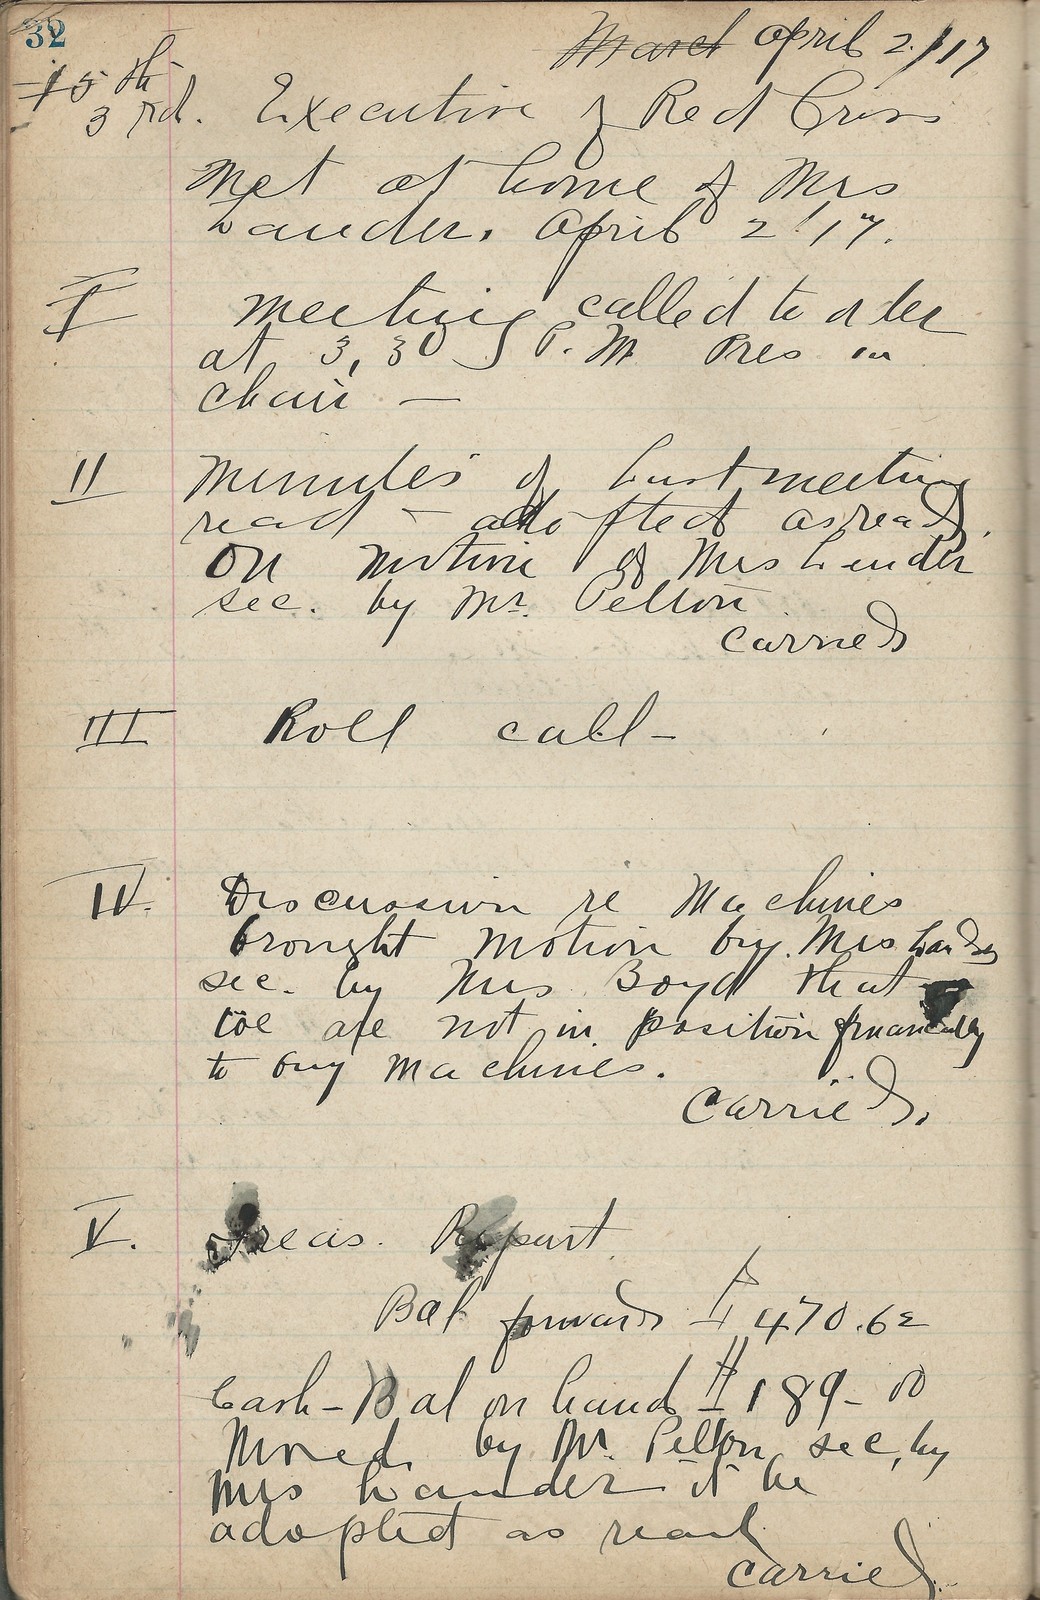 32
March April 2/17
15th
3rd. Executive of Red Cross
Met at home of Mrs
Lander. April 2/17.
I Meeting called to order
at 3,30 P.M. Pres in
chair —
II Minutes of last meeting
read - adopted as read.
On motion of Mrs Lander
sec. by Mr. Pelton
Carried
III Roll call -
IV. Discussion re Machines
brought motion by. Mrs Lander
sec. by Mrs Boyd that
we are not in position financially
to buy Machines.
Carried.
V. Treas. Report
Bal forward $470.62
Cash - Bal on hand $189-00
Moved by Mr. Pelton sec, by
Mrs Lander it be
adopted as read
Carried.